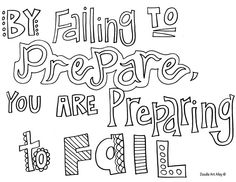 BY Failing TO
PrePare,
YOU ARE PrepaRing
to FaIL
Doodle Art Alley ©